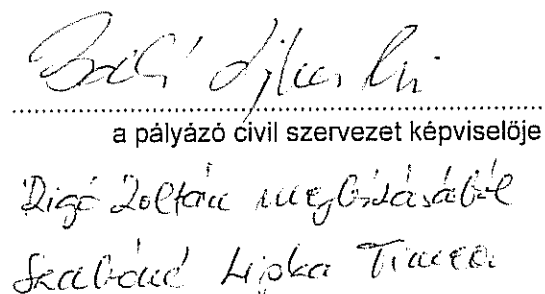 a pályázó civil szervezet képviselője
Rigó Zoltán megbízásából
Szabóné Lipka Tímea